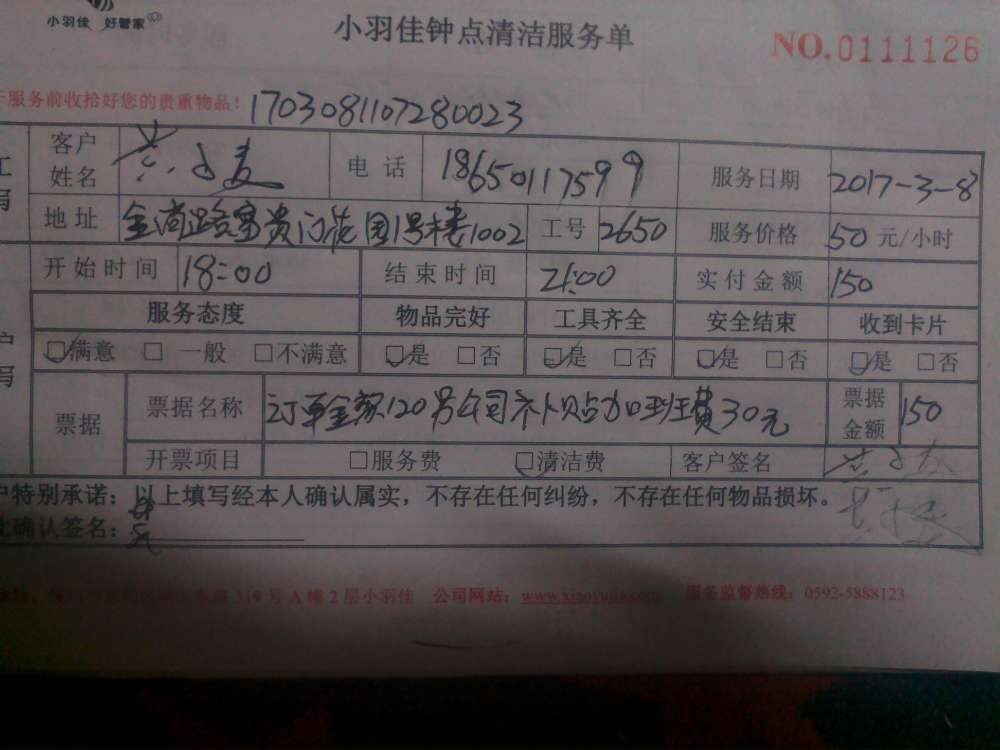 小羽佳 好管家
小羽佳钟点清洁服务单
NO.0111126
于服务前收拾好您的贵重物品! 1703081107280023
客户姓名 电话 18650117599 服务日期 2017-3-8
地址 金尚路富贵门花园1号楼1002 工号 2650 服务价格 50 元/小时
开始时间 18:00 结束时间 21:00 实付金额 150
服务态度 物品完好 工具齐全 安全结束 收到卡片
满意 一般 不满意 是 否 是 否 是 否 是 否
票据 票据名称 订单金额120另公司补贴加班费30元 票据金额 150
开票项目 服务费 清洁费 客户签名
户特别承诺：以上填写经本人确认属实，不存在任何纠纷，不存在任何物品损坏。
此确认签名：
319号A幢2层小羽佳 公司网站：www.xiaoyujia.com 服务监督热线：0592-5888123